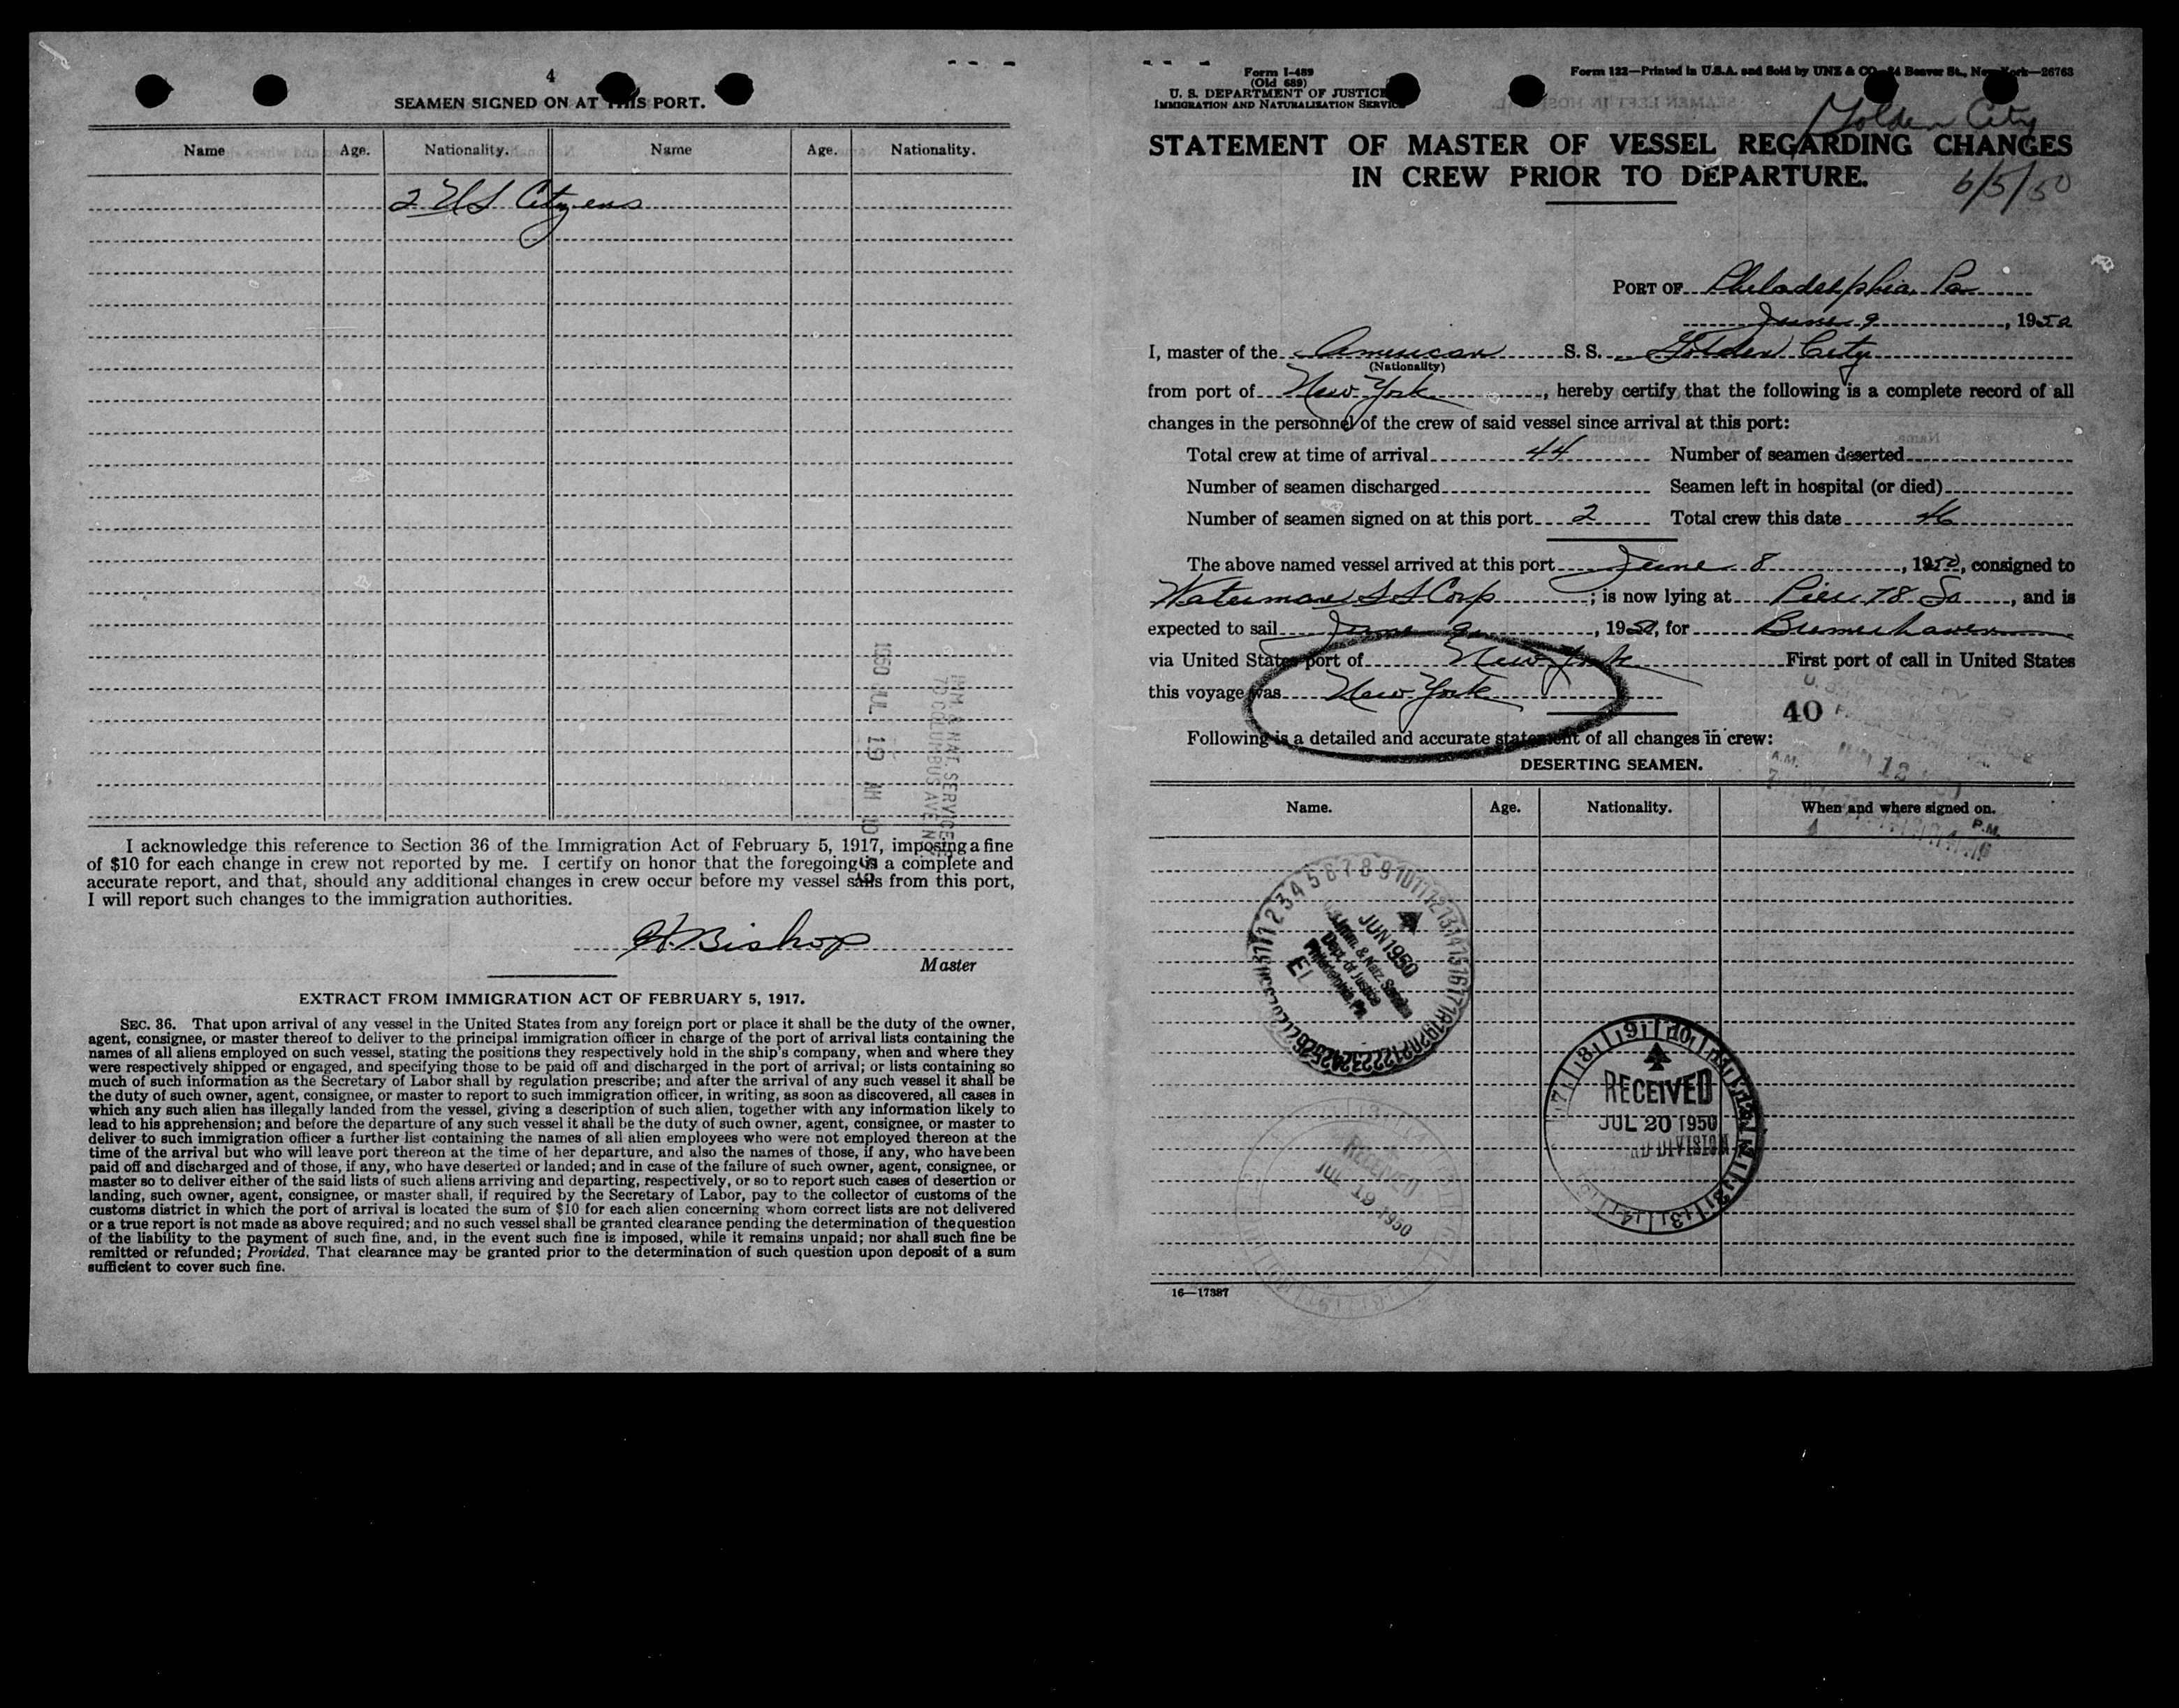 4
SEAMEN SIGNED ON AT THIS PORT.
Name Age. Nationality. Name Age. Nationality.
2 US Citizens
1950 JUL 19 AM 10
IMM. & NAT. SERVICE
70 COLUMBUS AVE N.Y.
I acknowledge this reference to Section 36 of the Immigration Act of February 5, 1917, imposing a fine
of $10 for each change in crew not reported by me. I certify on honor that the foregoing is a complete and
accurate report, and that, should any additional changes in crew occur before my vessel sails from this port,
I will report such changes to the immigration authorities.
H. Bishop
Master
EXTRACT FROM IMMIGRATION ACT OF FEBRUARY 5, 1917.
SEC. 36. That upon arrival of any vessel in the United States from any foreign port or place it shall be the duty of the owner,
agent, consignee, or master thereof to deliver to the principal immigration officer in charge of the port of arrival lists containing the
names of all aliens employed on such vessel, stating the positions they respectively hold in the ship's company, when and where they
were respectively shipped or engaged, and specifying those to be paid off and discharged in the port of arrival; or lists containing so
much of such information as the Secretary of Labor shall by regulation prescribe; and after the arrival of any such vessel it shall be
the duty of such owner, agent, consignee, or master to report to such immigration officer, in writing, as soon as discovered, all cases in
which any such alien has illegally landed from the vessel, giving a description of such alien, together with any information likely to
lead to his apprehension; and before the departure of any such vessel it shall be the duty of such owner, agent, consignee, or master to
deliver to such immigration officer a further list containing the names of all alien employees who were not employed thereon at the
time of the arrival but who will leave port thereon at the time of her departure, and also the names of those, if any, who have been
paid off and discharged and of those, if any, who have deserted or landed; and in case of the failure of such owner, agent, consignee, or
master so to deliver either of the said lists of such aliens arriving and departing, respectively, or so to report such cases of desertion or
landing, such owner, agent, consignee, or master shall, if required by the Secretary of Labor, pay to the collector of customs of the
customs district in which the port of arrival is located the sum of $10 for each alien concerning whom correct lists are not delivered
or a true report is not made as above required; and no such vessel shall be granted clearance pending the determination of the question
of the liability to the payment of such fine, and, in the event such fine is imposed, while it remains unpaid; nor shall such fine be
remitted or refunded; Provided, That clearance may be granted prior to the determination of such question upon deposit of a sum
sufficient to cover such fine.
Form I-489
(Old 689)
U. S. DEPARTMENT OF JUSTICE
IMMIGRATION AND NATURALIZATION SERVICE
Form 122—Printed in U.S.A. and Sold by UNZ & CO., 24 Beaver St., New York—26763
Golden City
STATEMENT OF MASTER OF VESSEL REGARDING CHANGES
IN CREW PRIOR TO DEPARTURE.
6/5/50
PORT OF Philadelphia Pa
June 9, 1950
I, master of the American S. S. Golden City
(Nationality)
from port of New York, hereby certify that the following is a complete record of all
changes in the personnel of the crew of said vessel since arrival at this port:
Total crew at time of arrival 44 Number of seamen deserted
Number of seamen discharged Seamen left in hospital (or died)
Number of seamen signed on at this port 2 Total crew this date 46
The above named vessel arrived at this port June 8, 1950, consigned to
Waterman S S Corp; is now lying at Pier 78 So, and is
expected to sail June 9, 1950, for Bremerhaven
via United States port of New York First port of call in United States
this voyage was New York
40
Following is a detailed and accurate statement of all changes in crew:
DESERTING SEAMEN.
A.M. 12
Name. Age. Nationality. When and where signed on.
P.M.
JUN 1950
U.S. Imm. & Natz. Service
Dept. of Justice
Philadelphia, Pa.
RECEIVED
JUL 20 1950
DIVISION
RECEIVED
JUL 19 1950
16—17387